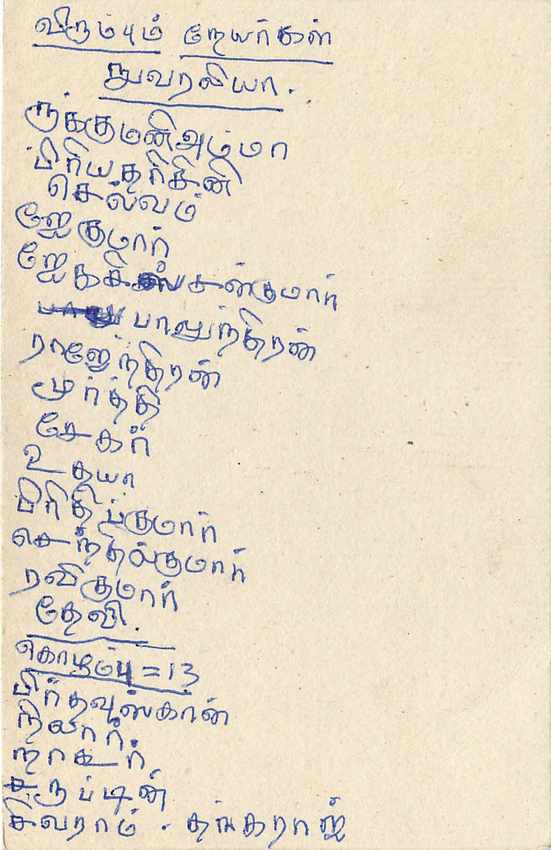 விரும்பும் நேயர்கள்
நுவரலியா.
ருக்குமணிஅம்மா
பிரியதரிசினி
செல்வம்
ஜெகுமார்
பாலுந்திரன்
ராஜேந்திரன்
மூர்த்தி
சேகர்
உதயா
பிரதிப்குமார்
செந்தில்குமார்
ரவிகுமார்
தேவி.
கொழும்பு = 13
பிர்தவுஸ்கான்
நிலார்
நாகூர்
சருப்டின்
சிவராம். தங்கராஜ்